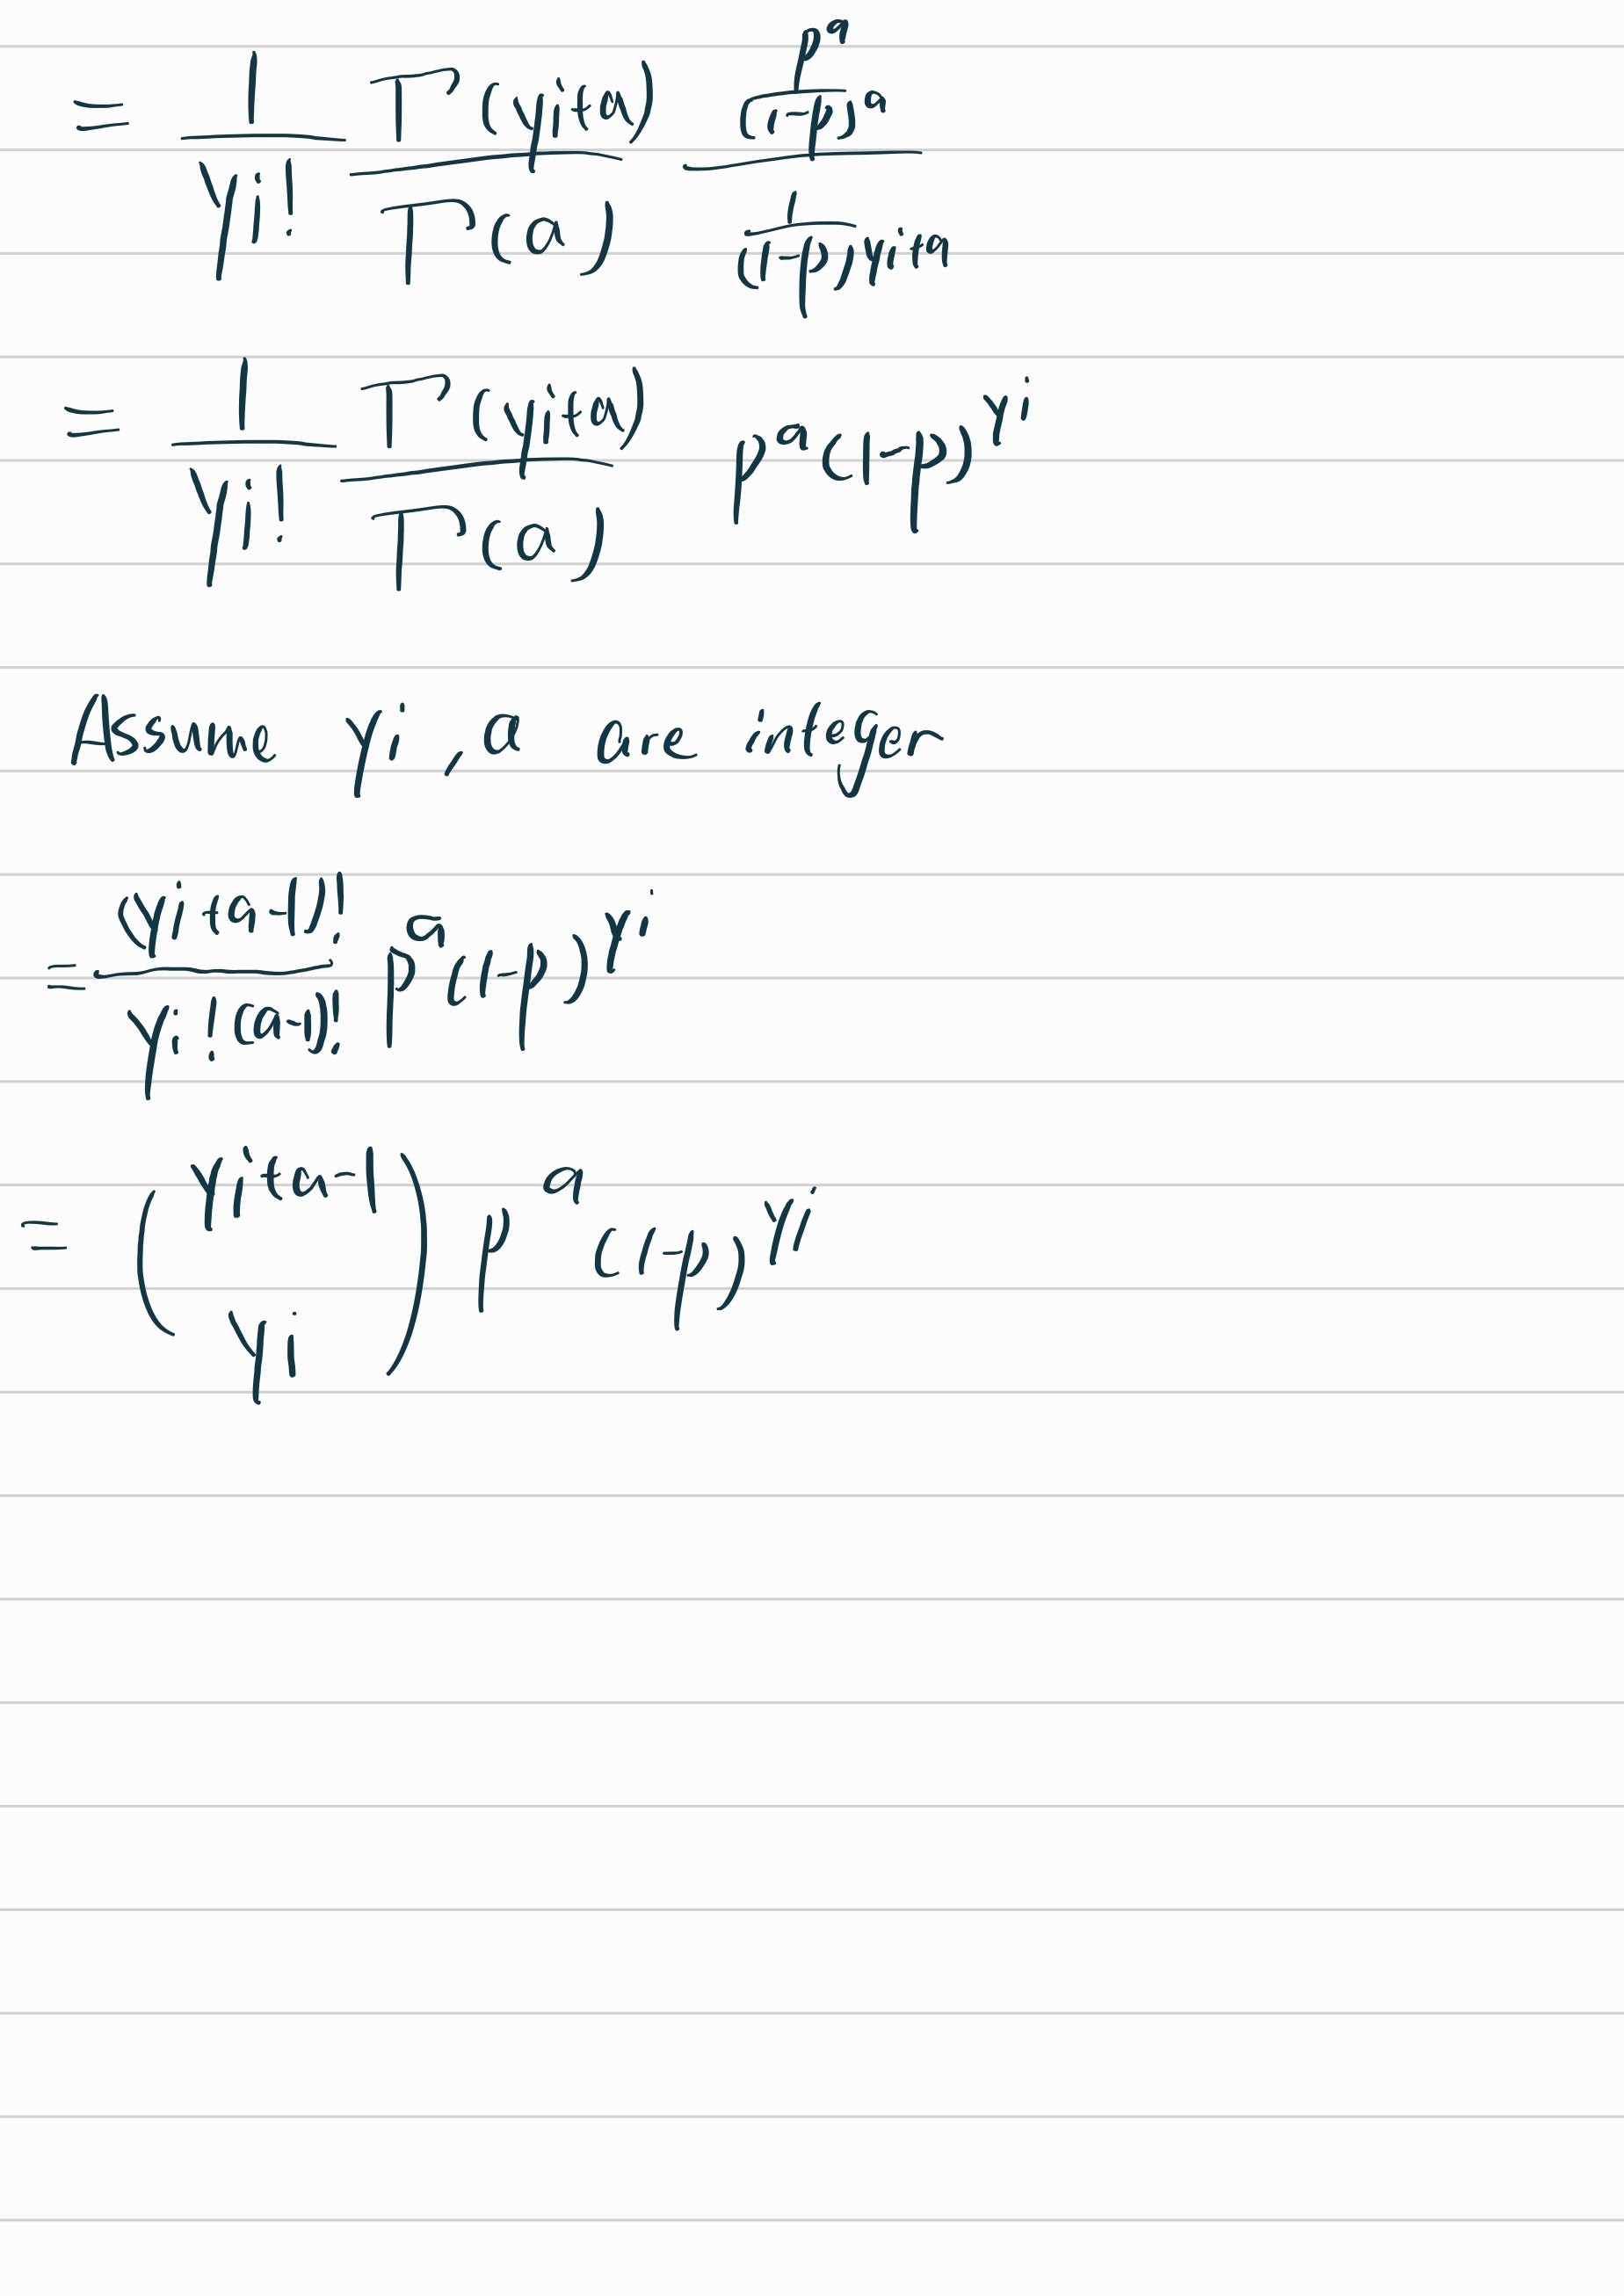 = \frac{1}{y_i!} \frac{\Gamma(y_i+a)}{\Gamma(a)} \frac{\frac{p^a}{(1-p)^a}}{\frac{1}{(1-p)^{y_i+a}}}
= \frac{1}{y_i!} \frac{\Gamma(y_i+a)}{\Gamma(a)} p^a (1-p)^{y_i}
Assume y_i, a are integer
= \frac{(y_i+a-1)!}{y_i!(a-1)!} p^a (1-p)^{y_i}
= \binom{y_i+a-1}{y_i} p^a (1-p)^{y_i}